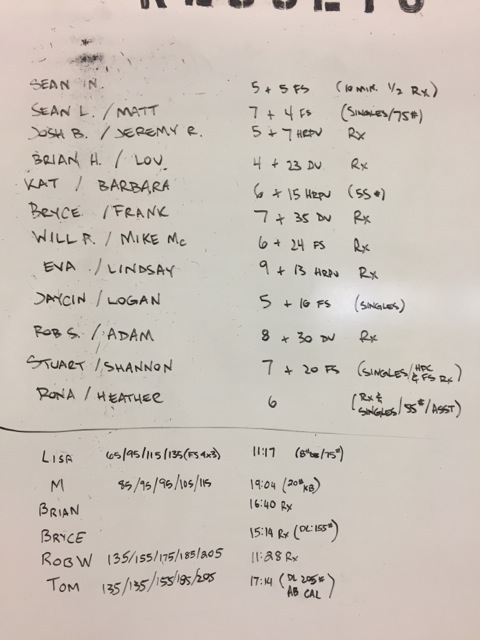 RESULTS
SEAN N. 5 + 5 FS (10 MIN. 1/2 RX)
SEAN L. / MATT 7 + 4 FS (SINGLES/75#)
JOSH B. / JEREMY R. 5 + 7 HRPU RX
BRIAN H. / LOU 4 + 23 DU RX
KAT / BARBARA 6 + 15 HRPU (55#)
BRYCE / FRANK 7 + 35 DU RX
WILL P. / MIKE MC 6 + 24 FS RX
EVA / LINDSAY 9 + 13 HRPU RX
JAYCIN / LOGAN 5 + 16 FS (SINGLES)
ROB S. / ADAM 8 + 30 DU RX
STUART / SHANNON 7 + 20 FS (SINGLES/HPC & FS RX)
RONA / HEATHER 6 (RX & SINGLES/55#/ASST)
LISA 65/95/115/135(FS 4x3) 11:17 (/75#)
M 85/95/95/105/115 19:04 (20# KB)
BRIAN 16:40 RX
BRYCE 15:14 RX (DL:155#)
ROB W 135/155/175/185/205 11:28 RX
TOM 135/135/155/185/205 17:14 (DL 205# AB CAL)